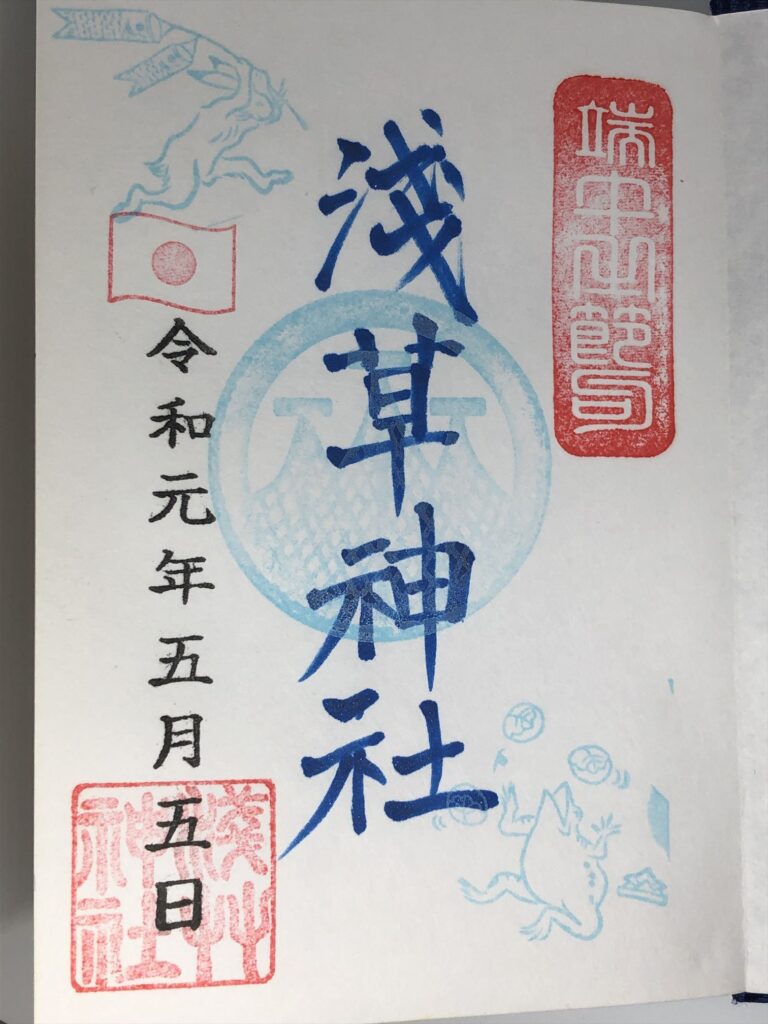 端午之節句
淺草神社
令和元年五月五日
淺艸
神社